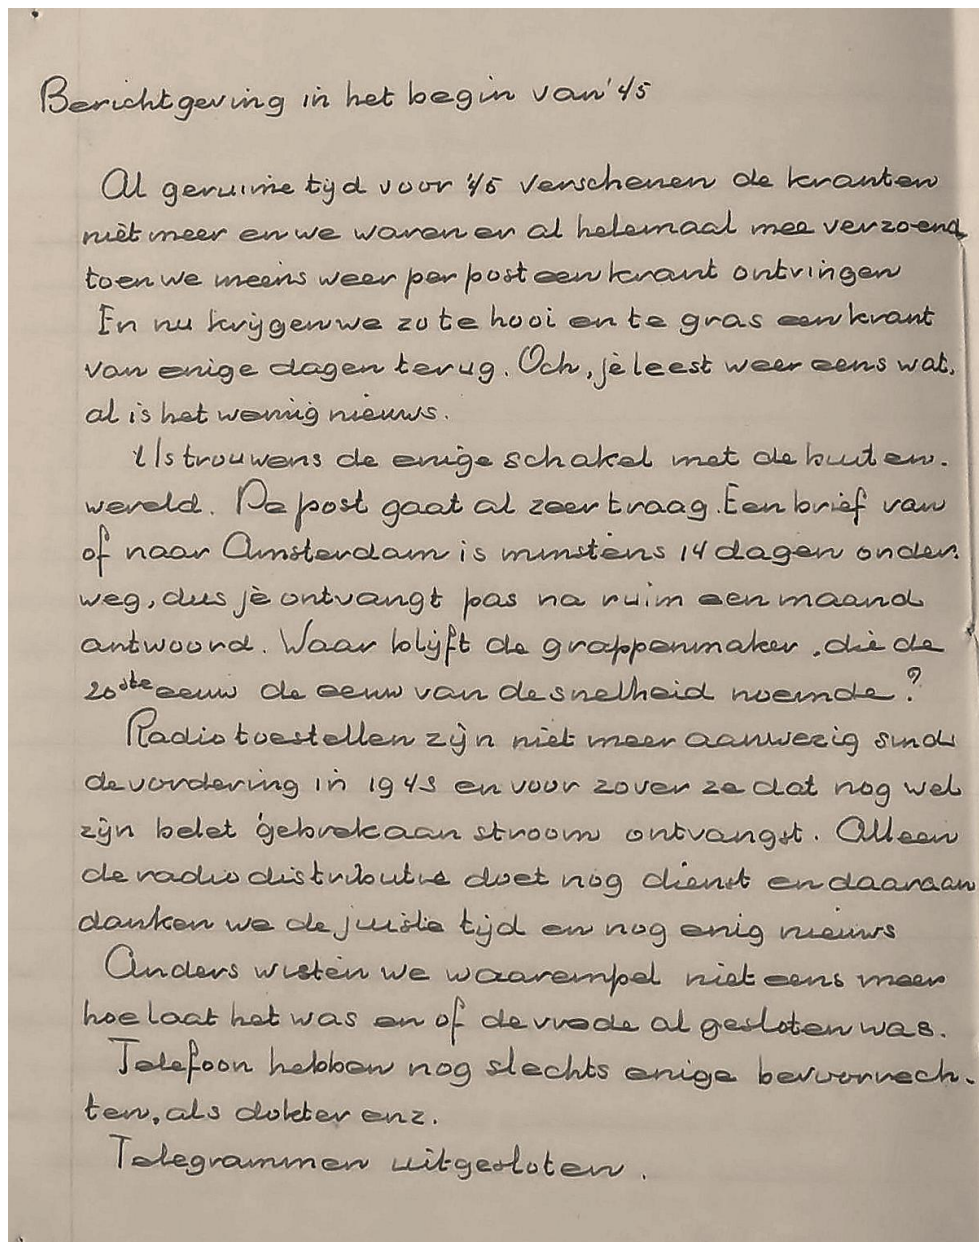 Berichtgeving in het begin van '45
Al geruime tijd voor '45 verschenen de kranten
niet meer en we waren er al helemaal mee verzoend,
toen we ineens weer per post een krant ontvingen
En nu krijgen we zo te hooi en te gras een krant
van enige dagen terug. Och, je leest weer eens wat,
al is het weinig nieuws.
't Is trouwens de enige schakel met de buiten-
wereld. De post gaat al zeer traag. Een brief van
of naar Amsterdam is minstens 14 dagen onder-
weg, dus je ontvangt pas na ruim een maand
antwoord. Waar blijft de grappenmaker, die de
20ste eeuw de eeuw van de snelheid noemde?
Radiotoestellen zijn niet meer aanwezig sinds
de vordering in 1943 en voor zover ze dat nog wel
zijn belet gebrek aan stroom ontvangst. Alleen
de radiodistributie doet nog dienst en daaraan
danken we de juiste tijd en nog enig nieuws
Anders wisten we waarempel niet eens meer
hoe laat het was en of de vrede al gesloten was.
Telefoon hebben nog slechts enige bevoorrech-
ten, als dokter enz.
Telegrammen uitgesloten.